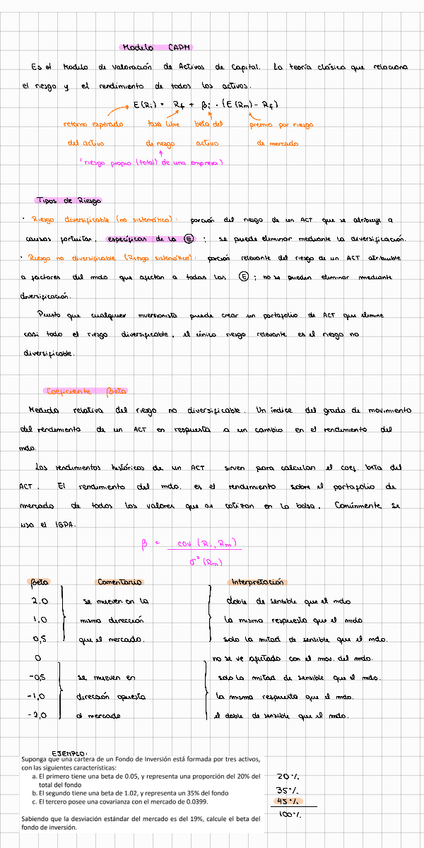 Modelo CAPM
Es el Modelo de Valoración de Activos de Capital. La teoría clásica que relaciona
el riesgo y el rendimiento de todos los activos.
E(Ri) = Rf + βi · (E(Rm) - Rf)
retorno esperado tasa libre beta del premio por riesgo
del activo de riesgo activo de mercado
"riesgo propio (total) de una empresa"
Tipos de Riesgo
· Riesgo diversificable (no sistemático): porción del riesgo de un ACT que se atribuye a
causas fortuitas, específicas de la E ; se puede eliminar mediante la diversificación.
· Riesgo no diversificable (Riesgo sistemático): porción relevante del riesgo de un ACT atribuible
a factores del mdo que afectan a todas las E ; no se pueden eliminar mediante
diversificación.
Puesto que cualquier inversionista puede crear un portafolio de ACT que elimine
casi todo el riesgo diversificable, el único riesgo relevante es el riesgo no
diversificable.
Coeficiente Beta
Medida relativa del riesgo no diversificable. Un índice del grado de movimiento
del rendimiento de un ACT en respuesta a un cambio en el rendimiento del
mdo.
Los rendimientos históricos de un ACT sirven para calcular el coef. beta del
ACT. El rendimiento del mdo. es el rendimiento sobre el portafolio de
mercado de todos los valores que se cotizan en la bolsa. Comúnmente se
usa el IGPA.
β = cov (Ri, Rm)
σ² (Rm)
Beta Comentario Interpretación
2,0 Se mueven en la doble de sensible que el mdo
1,0 misma dirección la misma respuesta que el mdo
0,5 que el mercado. solo la mitad de sensible que el mdo.
0 no se ve afectado con el mov. del mdo.
-0,5 se mueven en solo la mitad de sensible que el mdo.
-1,0 dirección opuesta la misma respuesta que el mdo.
-2,0 al mercado el doble de sensible que el mdo.
EJEMPLO:
Suponga que una cartera de un Fondo de Inversión está formada por tres activos,
con las siguientes características:
a. El primero tiene una beta de 0.05, y representa una proporción del 20% del
total del fondo
b. El segundo tiene una beta de 1.02, y representa un 35% del fondo
c. El tercero posee una covarianza con el mercado de 0.0399.
20%
35%
45%
100%
Sabiendo que la desviación estándar del mercado es del 19%, calcule el beta del
fondo de inversión.